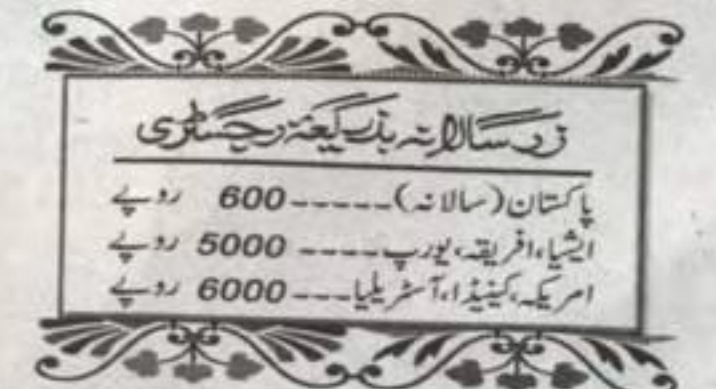 زر سالانہ بذریعۂ رجسٹری
پاکستان (سالانہ)-----600 روپے
ایشیا، افریقہ، یورپ----5000 روپے
امریکہ، کینیڈا، آسٹریلیا----6000 روپے